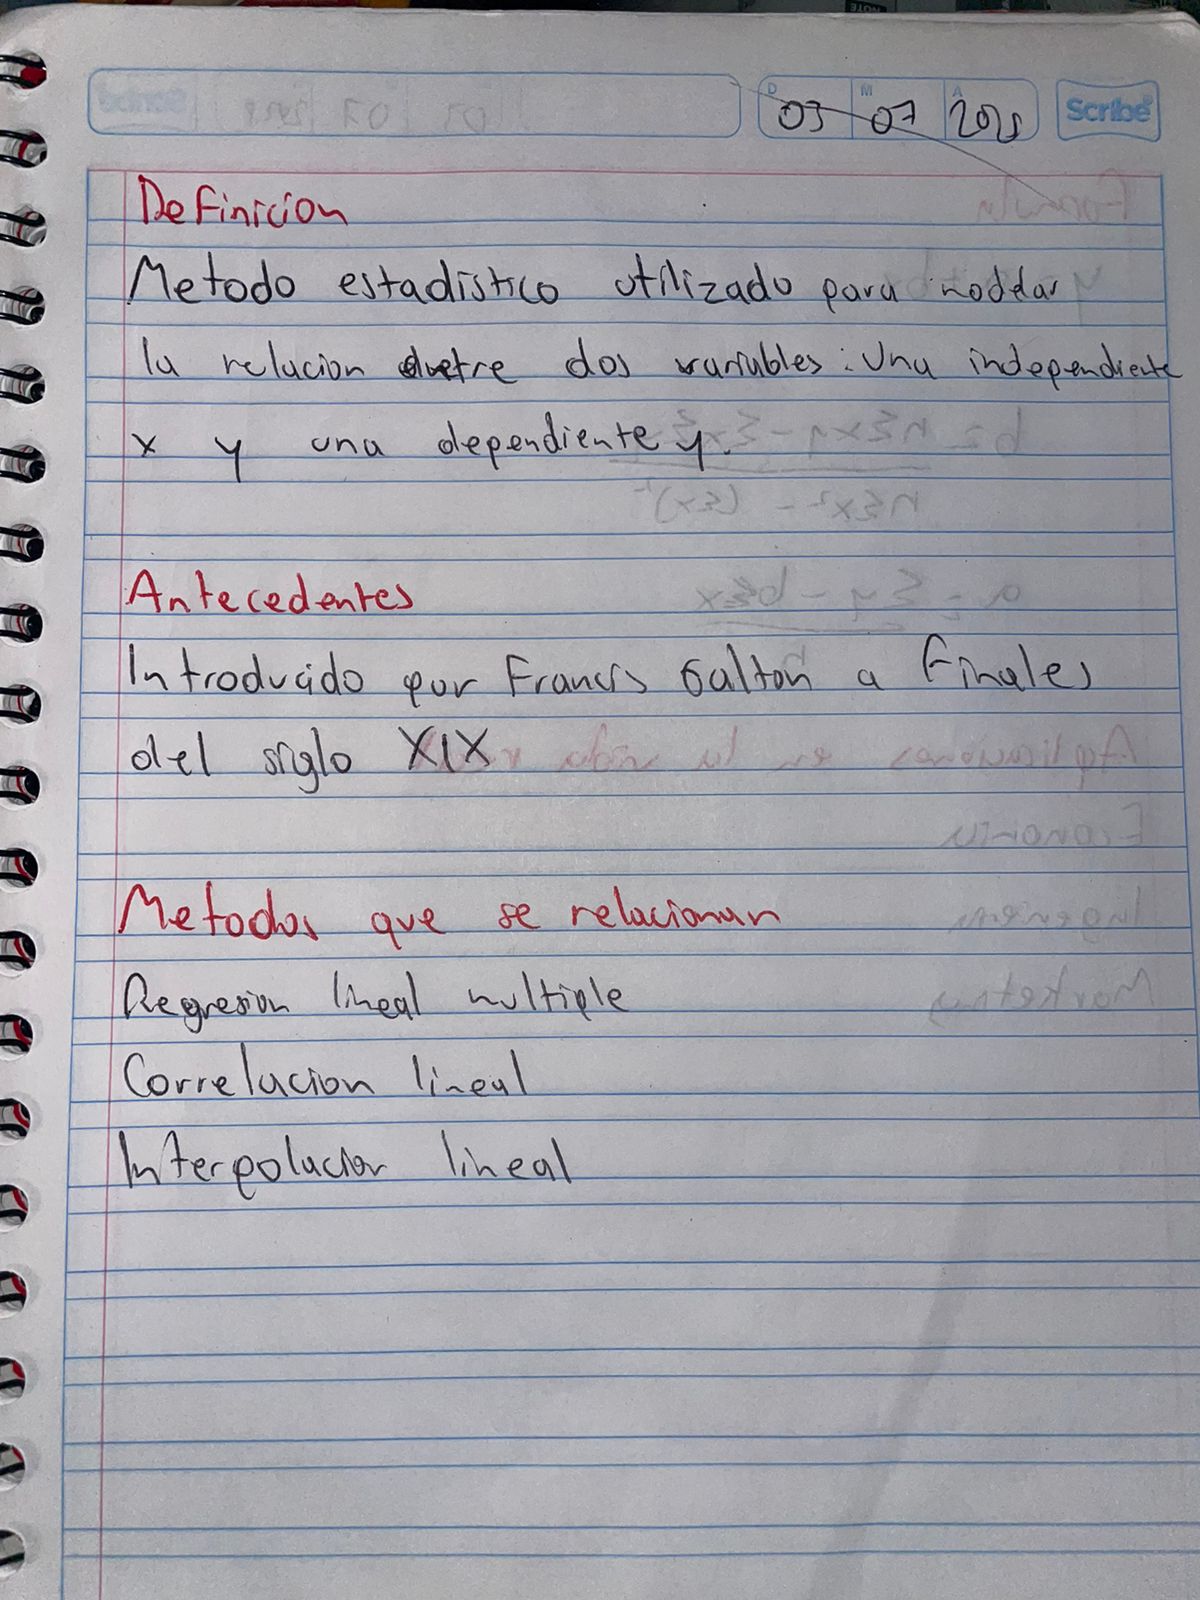 D M A
03 07 2025
Scribe
Definicion
Metodo estadistico utilizado para modelar
la relacion entre dos variables: Una independiente
x y una dependiente y.
Antecedentes
Introducido por Francis Galton a Finales
del siglo XIX
Metodos que se relacionan
Regresion lineal multiple
Correlacion lineal
Interpolacion lineal